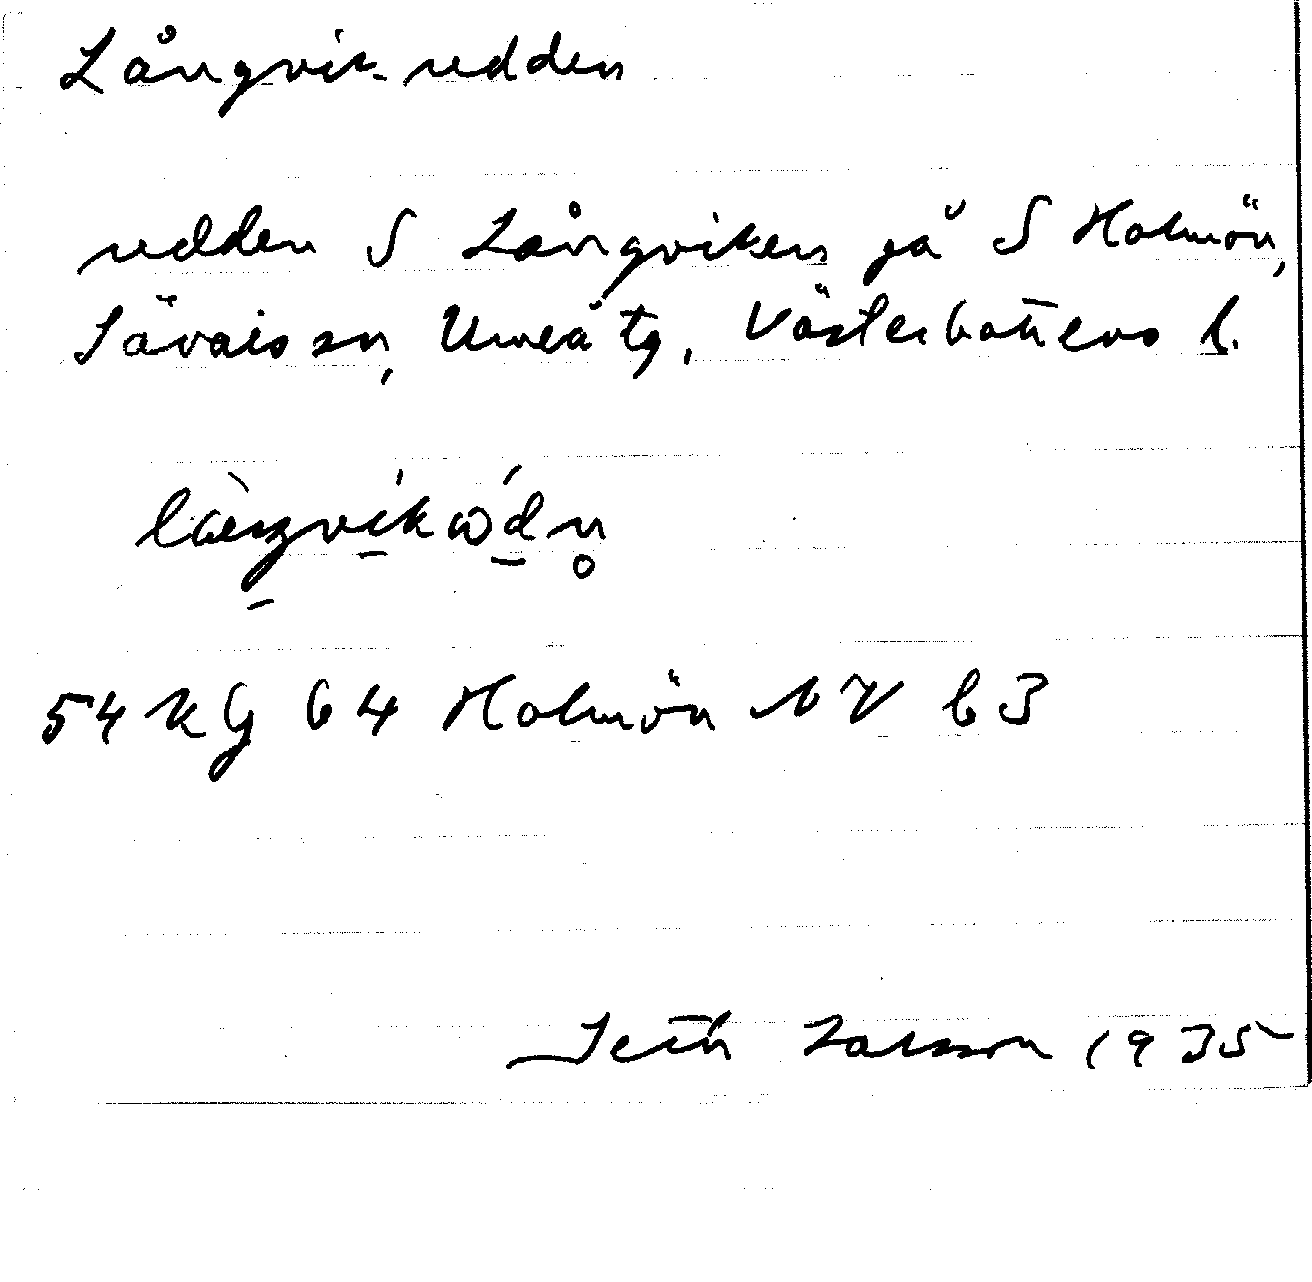 Långvik-redden
redden S Långviken på S Holmön,
Sävars sn, Umeå tg, Västerbottens l.
54 Kg 64 Holmön NV b3
Seth Larsson 1935